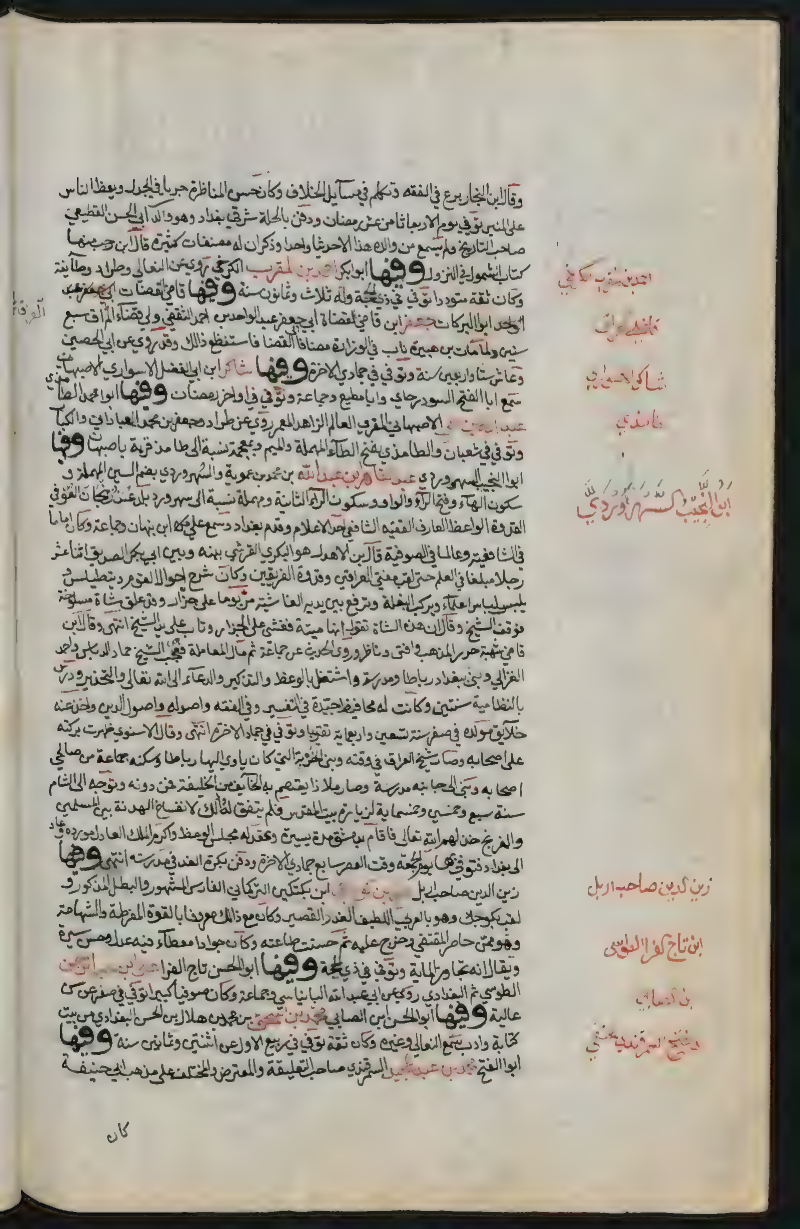 وقال ابن النجار برع في الفقه وتكلم في مسايل الخلاف وكان حسن المناظرة جريا في الجدل ويعظ الناس
على المنبر توفي يوم الاربعا ثامن عشر رمضان ودفن بالحلة شرقي بغداد وهو والد ابي الحسن القطيعي
صاحب التاريخ ولم يسمع من والده هذا الا حديثا واحدا وذكر ان له مصنفات كثيرة قال ابن رجب منها
كتاب الشمول في النزول وفيها ابو بكر احمد بن المقرب الكرخي روى عن النعالي وطراد وطايفة
وكان ثقة متوددا توفي في ذي الحجة وله ثلاث وثمانون سنة وفيها قاضي القضات ابو جعفر عبد
الواحد ابو البركات جعفر ابن قاضي القضاة ابي جعفر عبد الواحد بن احمد الثقفي ولي قضاء العراق سبع
سنين ولما مات ابن هبيرة ناب في الوزارة مضافا الى القضا فاستفظع ذلك وقد روى عن ابي الحصين
وعاش ستا واربعين سنة وتوفي في جمادي الاخرة وفيها شاكر ابن ابي الفضل الاسواري الاصبهاني
سمع ابا الفتح السودرجاي وابا مطيع وجماعة وتوفي في اواخر رمضان وفيها ابو محمد الطامذي
الاصبهاني المقري العالم الزاهد المعمر روى عن طراد وجعفر بن محمد العباداني والكبار
وتوفي في شعبان والطامذي بفتح الطاء المهملة والميم ومعجمة نسبة الى طامذ قرية باصبهان وفيها
ابو النجيب السهروردي عبد القاهر بن عبد الله بن محمد بن عموية والسهروردي بضم السين المهملة و
سكون الهاء وفتح الراء والواو وسكون الراء الثانية ومهملة نسبة الى سهرورد بلد عند زنجان الصوفي
القدوة الواعظ العارف الفقيه الشافعي احد الاعلام وقدم بغداد وسمع علي ابن نبهان وجماعة وكان اماما
في الشافعية وعالما في الصوفية قال ابن الاهدل هو البكري القرشي بينه وبين ابي بكر الصديق اثنا عشر
رجلا مبلغا في العلم حتى لقب مفتي العراقين وقدوة الفريقين وكان شرح احوال القوم ويتطيلس و
يلبس لباس العلماء ويركب البغلة وترفع بين يديه الغاشية مر يوما على جزار وقد علق شاة مسلوخة
فوقف الشيخ وقال ان هذه الشاة تقول انها ميتة فغشي على الجزار وتاب على يد الشيخ انتهى وقال ابن
قاضي شهبة حرر المذهب وافتى وناظر وروى الحديث عن جماعة ثم مال الى المعاملة فصحب الشيخ حماد الدباس واحمد
الغزالي وبنى ببغداد رباطا ومدرسة واشتغل بالوعظ والتذكير والدعاء الى الله تعالى والتحذير ودرس
بالنظامية سنتين وكانت له محافيظ جيدة في التفسير وفي الفقه واصوله واصول الدين واخذ عنه
خلايق مولده في صفر سنة تسعين واربعماية تقريبا وتوفي في جماد الاخرة انتهى وقال الاسنوي ظهرت بركته
على اصحابه وصار شيخ العراق في وقته وبنى الخربة التي كان ياوي اليها رباطا وسكنه جماعة من صالحي
اصحابه وبنى الى جانبه مدرسة وصار ملاذا يعتصم به الخايف من الخليفة فمن دونه وتوجه الى الشام
سنة سبع وخمسين وخمسماية لزيارة بيت المقدس فلم يتفق له ذلك لانفساخ الهدنة بين المسلمين
والفرنج خذلهم الله تعالى فاقام بدمشق مدة يسيرة وعقد له مجلس الوعظ واكرم الملك العادل مورده وعاد
الى بغداد فتوفي بها يوم الجمعة وقت العصر سابع جمادي الاخرة ودفن بكرة الغد في مدرسته انتهى وفيها
زين الدين صاحب اربل ابن بكتكين التركماني الفارس المشهور والبطل المذكور و
لقب بكوجك وهو بالعربي اللطيف القدر القصير وكان مع ذلك معروفا بالقوة المفرطة والشهامة
وهو ممن حاصر المقتفي وخرج عليه ثم حسنت طاعته وكان جوادا معطاء فيه عدل وحسن سيرة
ويقال انه تجاوز الماية وتوفي في ذي الحجة وفيها ابو الحسن تاج القرا علي ابن عبد الرحمن
الطوسي ثم البغدادي روى عن ابي عبد الله البانياسي وجماعة وكان صوفيا كبيرا توفي في صفر عن سن
عالية وفيها ابو الحسن ابن الصابي محمد بن اسحق بن محمد بن هلال بن الحسن البغدادي من بيت
كتابة وادب سمع النعالي وغيره وكان ثقة توفي في ربيع الاول عن اثنتين وثمانين سنة وفيها
ابو الفتح محمد بن عبد الحميد السمرقندي صاحب التعليقة والمعترض والمختلف على مذهب ابي حنيفة
كان
احمد بن مقرب الكرخي
قاضي العراق
شاكر الاسواري
طامذي
ابو النجيب السهروردي
زين الدين صاحب اربل
ابن تاج القرا الطوسي
بن الصابي